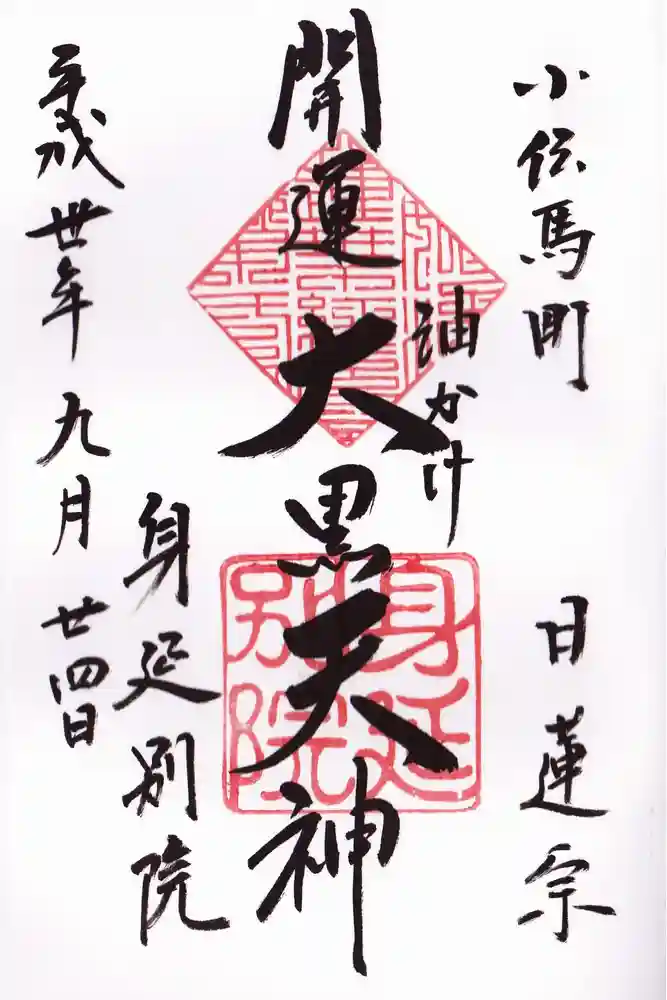 小伝馬町
日蓮宗
油かけ
開運大黒天神
身延別院
平成卅年九月廿四日
身延
別院